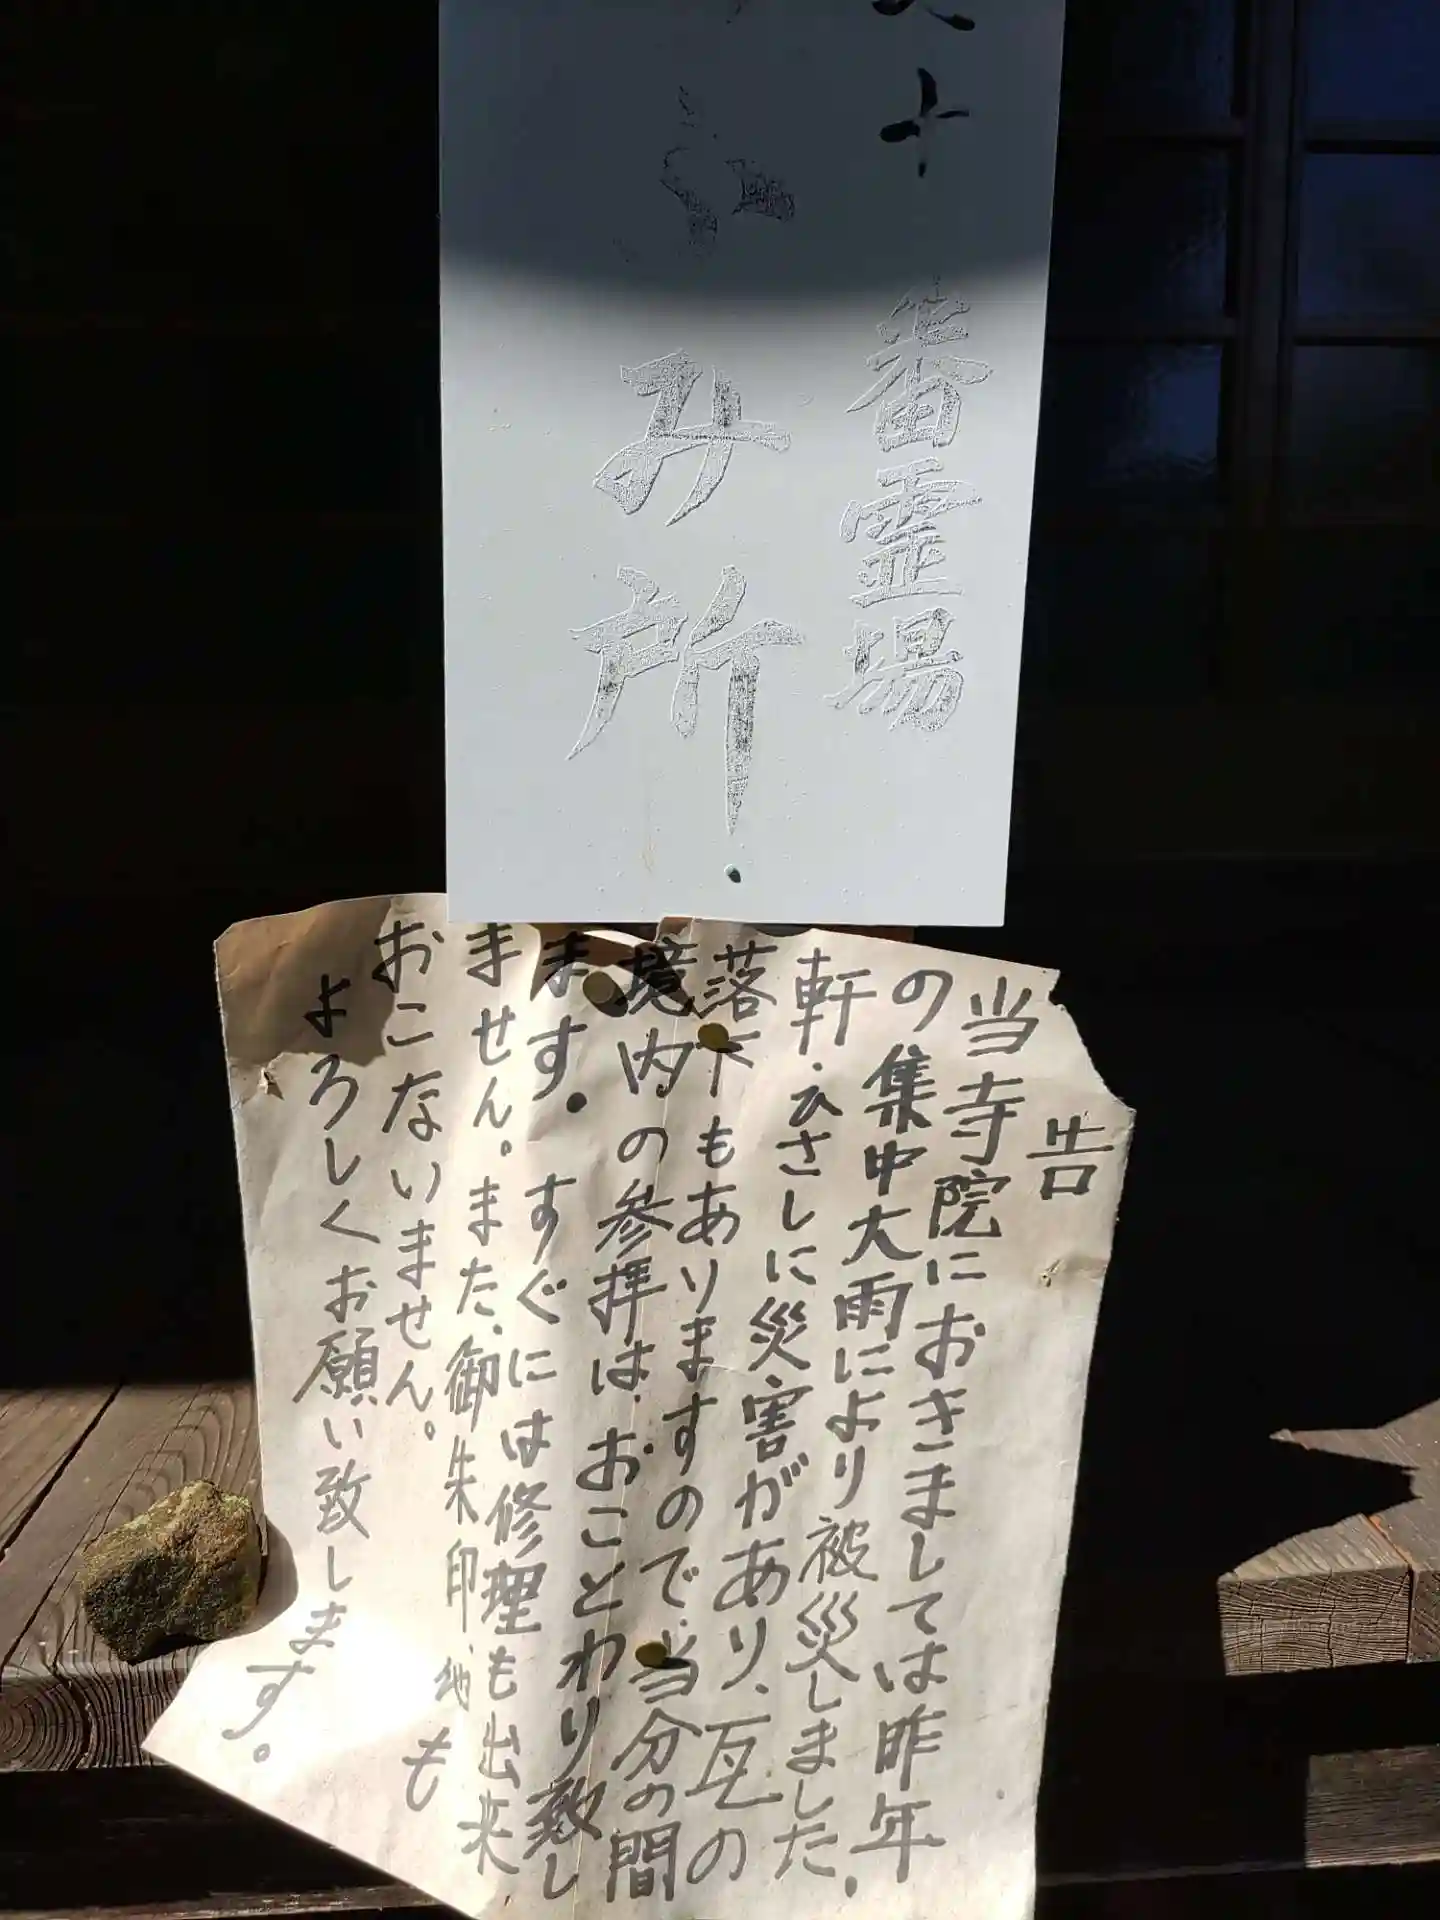 十番霊場
み所
告
当寺院におきましては昨年
の集中大雨により被災しました。
軒・ひさしに災害があり、瓦の
落下もありますので、当分の間
境内の参拝は、おことわり致し
ます。すぐには修理も出来
ません。また、御朱印、他も
おこないません。
よろしくお願い致します。